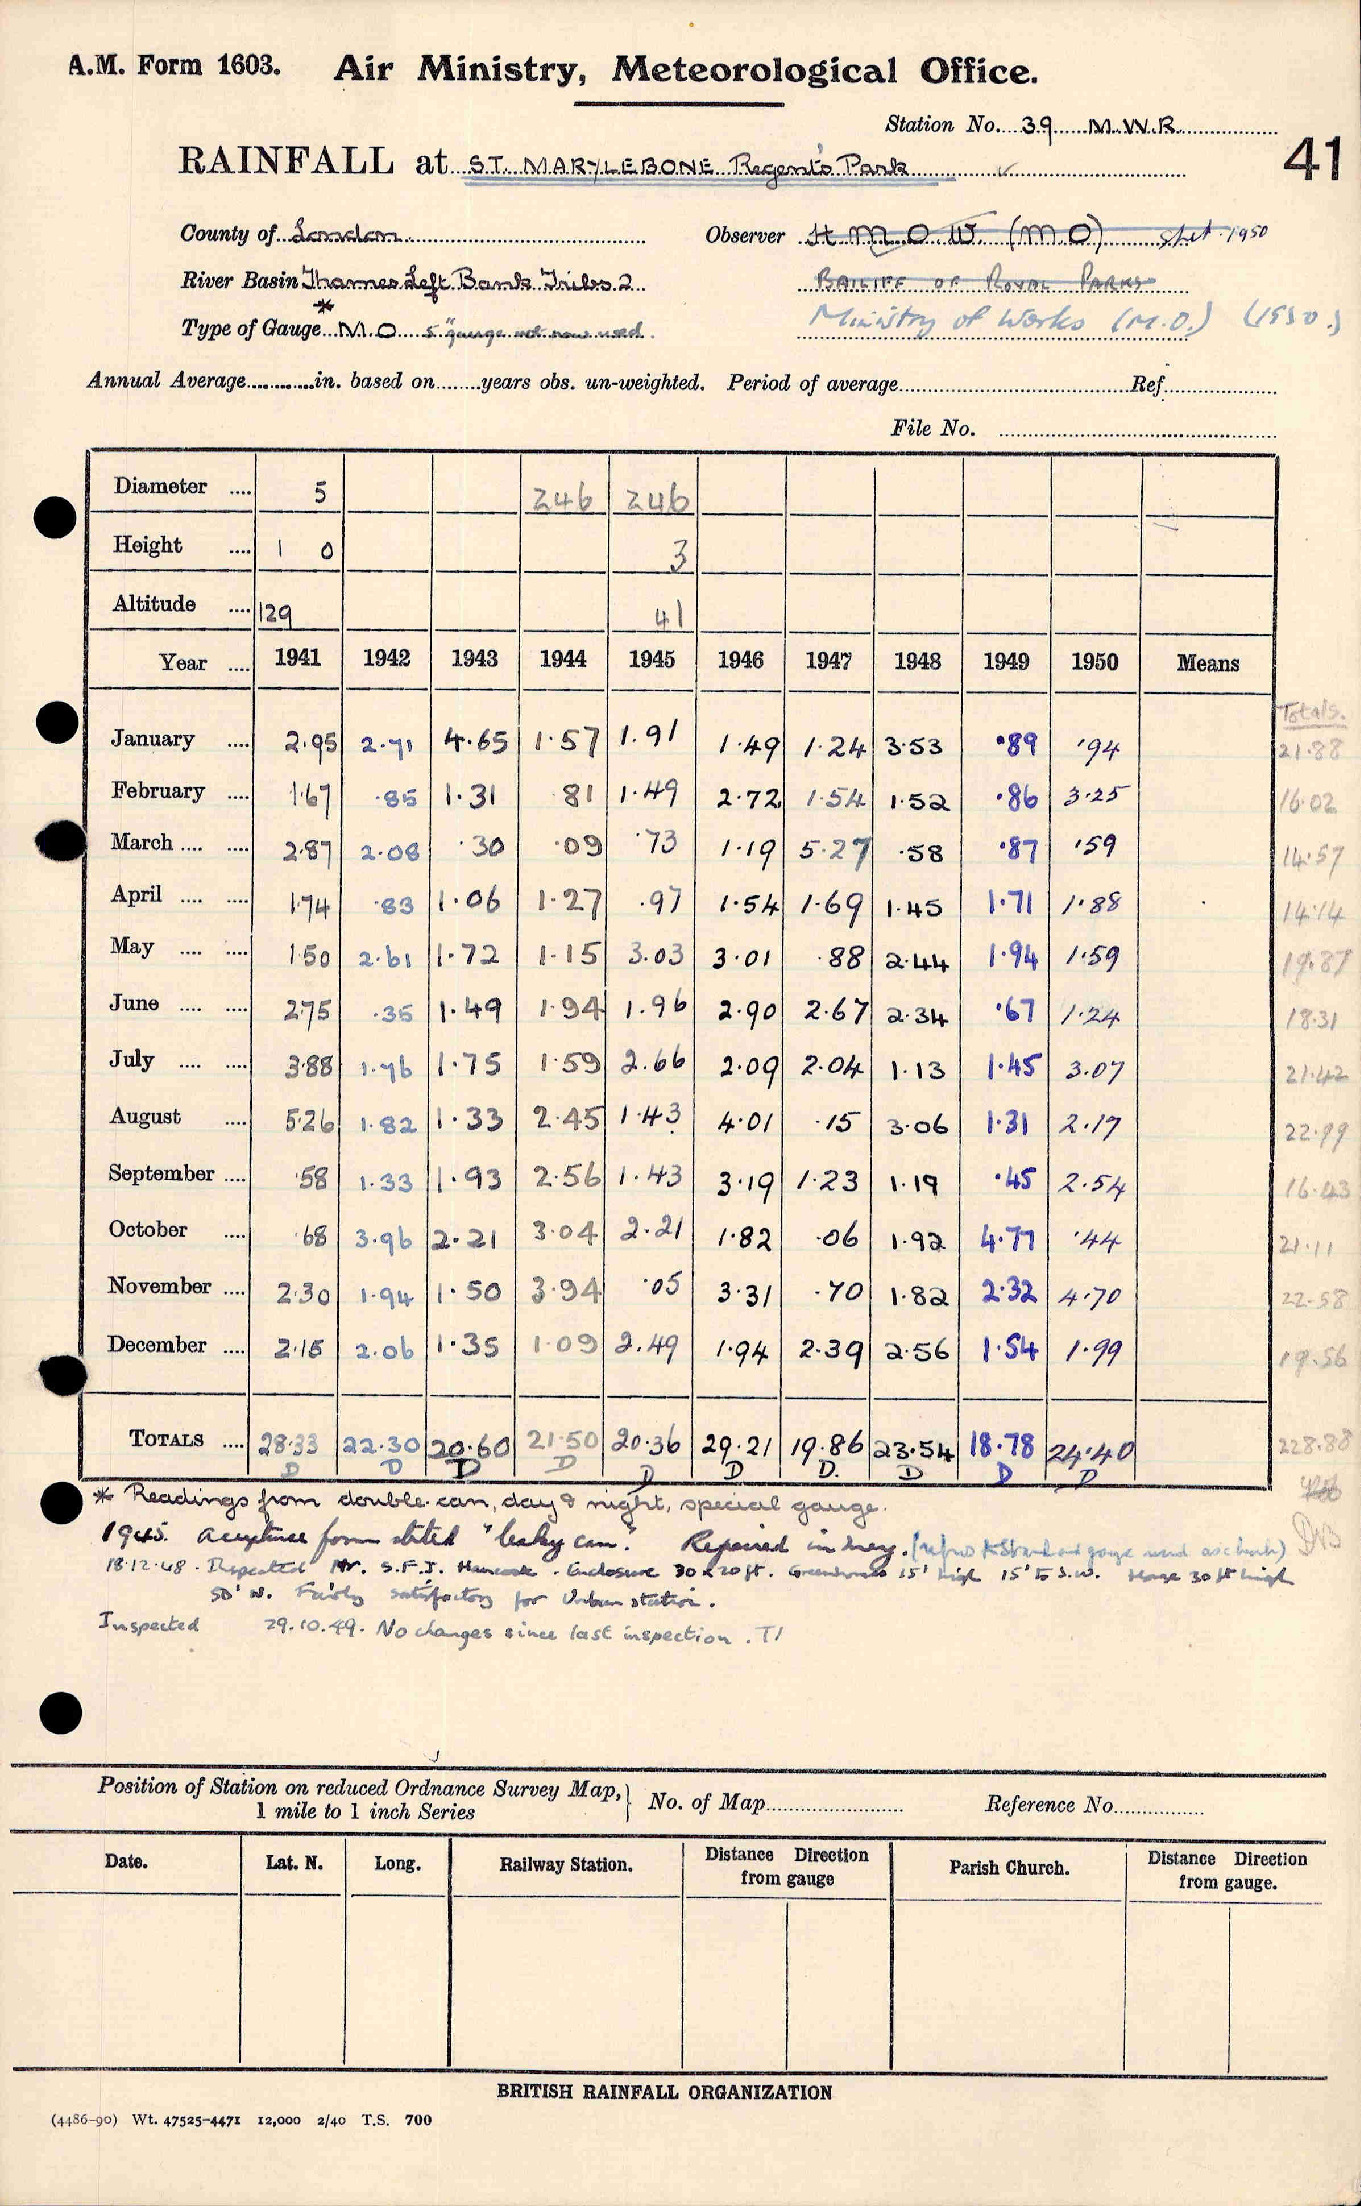 A.M. Form 1603. Air Ministry, Meteorological Office.
Station No. 39 M.W.R.
41
RAINFALL at ST. MARYLEBONE Regent's Park
County of London Observer H M O W. (M.O) Sbet. 1950
River Basin Thames Left Bank Tribs 2 BAILIFF OF ROYAL PARKS
Type of Gauge * M.O 5" gauge not now used. Ministry of Works (M.O.) (1950.)
Annual Average in. based on years obs. un-weighted. Period of average Ref.
File No.
Diameter .... 5 246 246
Height .... 1 0 3
Altitude .... 129 41
Year .... 1941 1942 1943 1944 1945 1946 1947 1948 1949 1950 Means
Totals.
January .... 2.95 2.71 4.65 1.57 1.91 1.49 1.24 3.53 .89 .94 21.88
February .... 1.67 .85 1.31 81 1.49 2.72 1.54 1.52 .86 3.25 16.02
March .... .... 2.87 2.08 .30 .09 .73 1.19 5.27 .58 .87 .59 14.57
April .... .... 1.74 .83 1.06 1.27 .97 1.54 1.69 1.45 1.71 1.88 14.14
May .... .... 1.50 2.61 1.72 1.15 3.03 3.01 .88 2.44 1.94 1.59 19.87
June .... .... 2.75 .35 1.49 1.94 1.96 2.90 2.67 2.34 .67 1.24 18.31
July .... .... 3.88 1.76 1.75 1.59 2.66 2.09 2.04 1.13 1.45 3.07 21.42
August .... 5.26 1.82 1.33 2.45 1.43 4.01 .15 3.06 1.31 2.17 22.99
September .... .58 1.33 1.93 2.56 1.43 3.19 1.23 1.19 .45 2.54 16.43
October .... .68 3.96 2.21 3.04 2.21 1.82 .06 1.92 4.77 .44 21.11
November .... 2.30 1.94 1.50 3.94 .05 3.31 .70 1.82 2.32 4.70 22.58
December .... 2.15 2.06 1.35 1.09 2.49 1.94 2.39 2.56 1.54 1.99 19.56
TOTALS .... 28.33 22.30 20.60 21.50 20.36 29.21 19.86 23.54 18.78 24.40 228.88
D D D D D D D. D D D
* Readings from double can, day & night, special gauge.
1945. form stated "leaky can". Repaired in
18.12.48. Inspected Mr. S.F.J. Hancock. Enclosure 30 x 20 ft. Greenhouse 15' high 15' to S.W. House 30 ft high
50' W. Fairly satisfactory for Urban station.
Inspected 29.10.49. No changes since last inspection. T1
Position of Station on reduced Ordnance Survey Map, } No. of Map Reference No.
1 mile to 1 inch Series
Date. Lat. N. Long. Railway Station. Distance Direction from gauge Parish Church. Distance Direction from gauge.
BRITISH RAINFALL ORGANIZATION
(4486-90) Wt. 47525-4471 12,000 2/40 T.S. 700